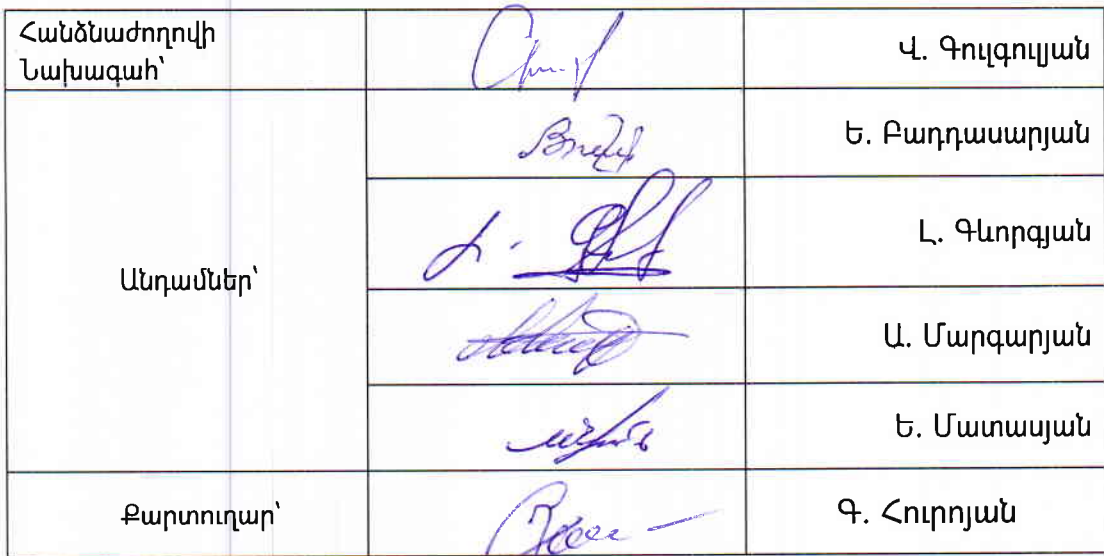 Հանձնաժողովի
Նախագահ՝
Վ. Գուլգուլյան
Անդամներ՝
Ե. Բադդասարյան
Լ. Գևորգյան
Ա. Մարգարյան
Ե. Մատասյան
Քարտուղար՝
Գ. Հուրոյան